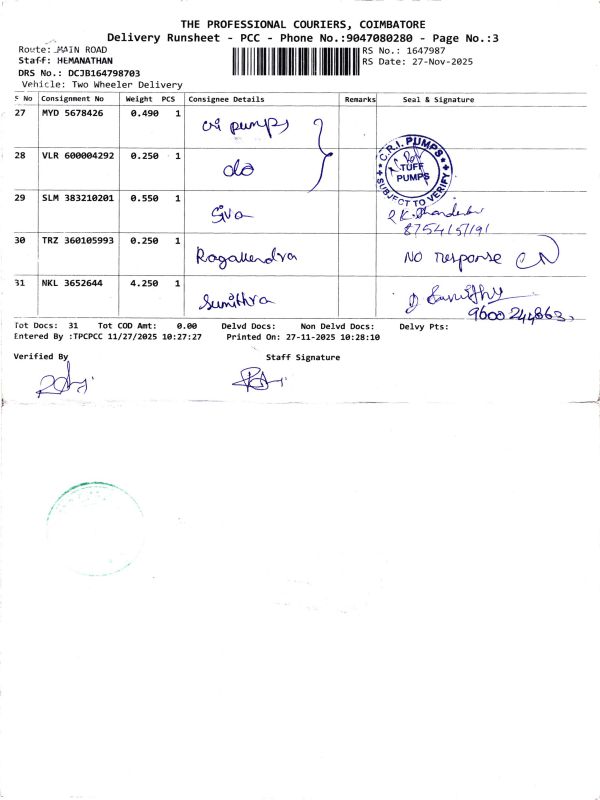 THE PROFESSIONAL COURIERS, COIMBATORE
Delivery Runsheet - PCC - Phone No.:9047080280 - Page No.:3
Route: MAIN ROAD
RS No.: 1647987
Staff: HEMANATHAN
RS Date: 27-Nov-2025
DRS No.: DCJB164798703
Vehicle: Two Wheeler Delivery
S No Consignment No Weight PCS Consignee Details Remarks Seal & Signature
27 MYD 5678426 0.490 1 cri pumps
28 VLR 600004292 0.250 1 do
C.R.I. PUMPS
TUFF
PUMPS
SUBJECT TO VERIFY
29 SLM 383210201 0.550 1 Siva
30 TRZ 360105993 0.250 1 Ragavendra No response
31 NKL 3652644 4.250 1 Sumithra
9600244863
Tot Docs: 31 Tot COD Amt: 0.00 Delvd Docs: Non Delvd Docs: Delvy Pts:
Entered By :TPCPCC 11/27/2025 10:27:27 Printed On: 27-11-2025 10:28:10
Verified By Staff Signature